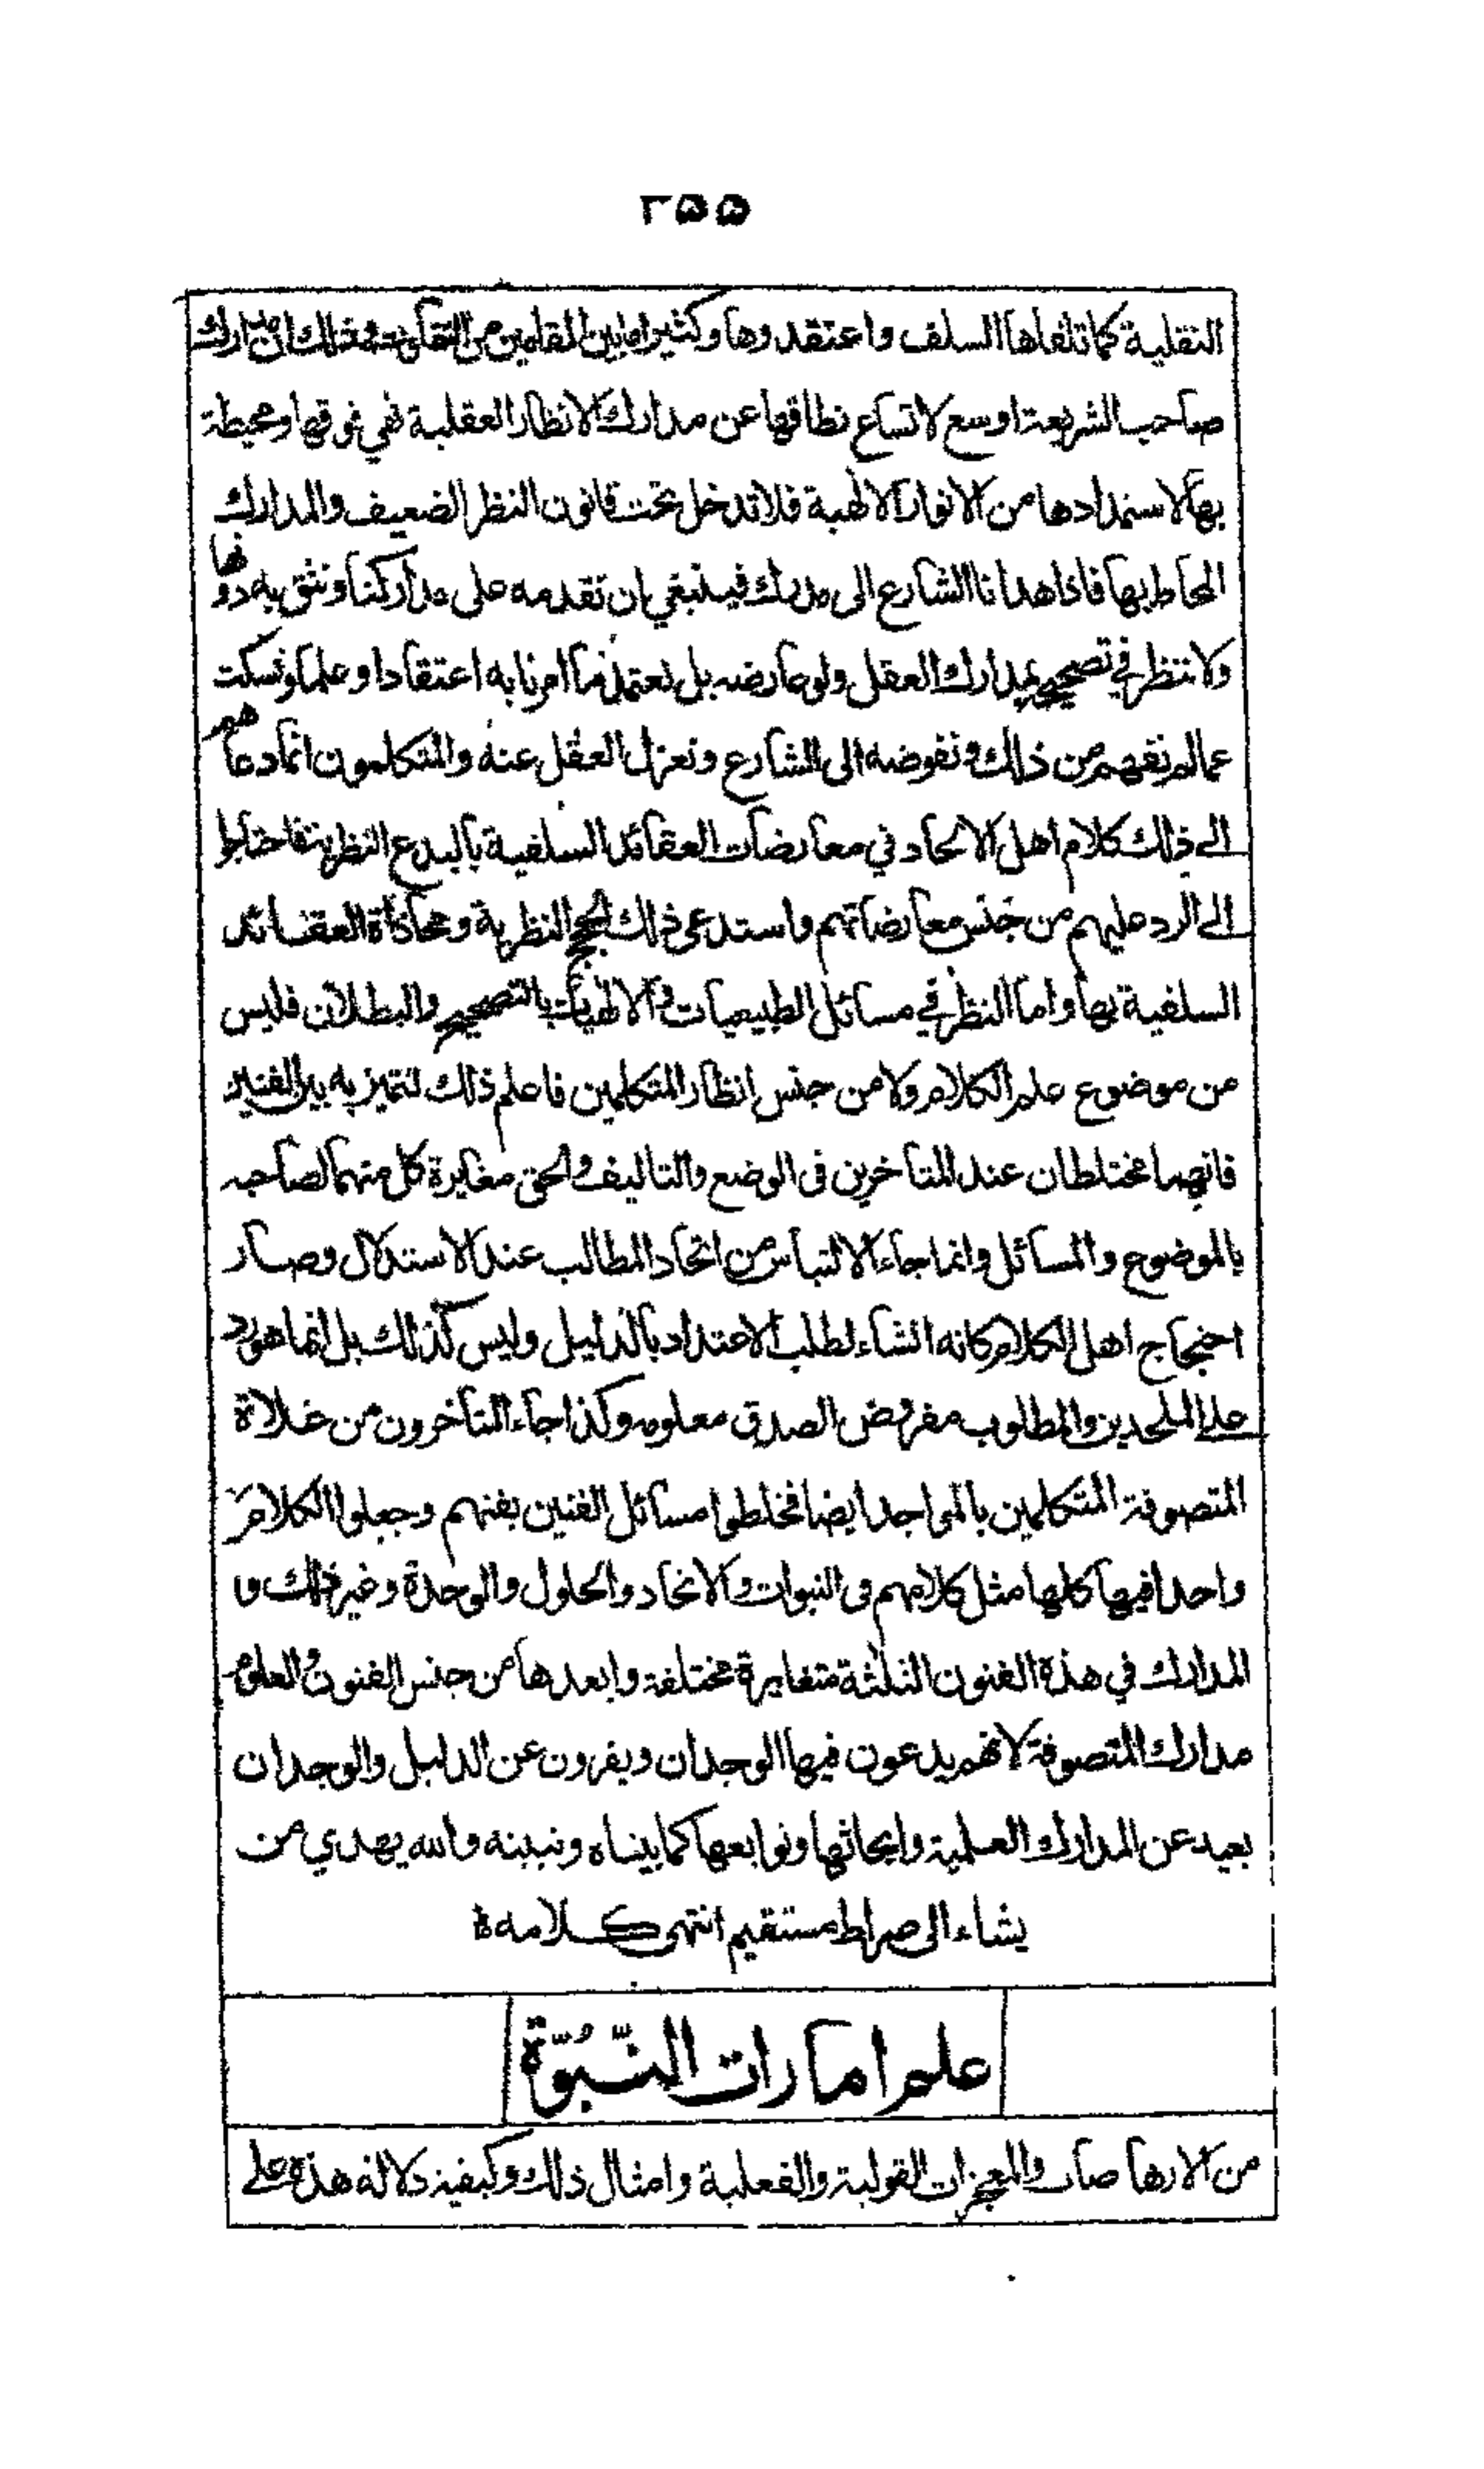 ٢٥٥
النقلية كما تلقاها السلف واعتقدوها وكثير ما بين المقامين من التفاوت وذلك ان مدارك
صاحب الشريعة اوسع لاتساع نطاقها عن مدارك الانظار العقلية فهي فوقها ومحيطة
بها لاستمدادها من الانوار الالهية فلا تدخل تحت قانون النظر الضعيف والمدارك
المحاط بها فاذا هدانا الشارع الى مدرك فينبغي ان نقدمه على مداركنا ونثق به دونها
ولا ننظر في تصحيحه بمدارك العقل ولو عارضه بل نعتمد ما امرنا به اعتقادا وعلما ونسكت
عما لم نفهم من ذلك ونفوضه الى الشارع ونعزل العقل عنه والمتكلمون انما دعاهم
الى ذلك كلام اهل الالحاد في معارضات العقائد السلفية بالبدع النظرية فاحتاجوا
الى الرد عليهم من جنس معارضاتهم واستدعى ذلك الحجج النظرية ومحاذاة العقائد
السلفية بها واما النظر في مسائل الطبيعيات والالهيات بالتصحيح والبطلان فليس
من موضوع علم الكلام ولا من جنس انظار المتكلمين فاعلم ذلك لتميز به بين الفنين
فانهما مختلطان عند المتاخرين فى الوضع والتاليف والحق مغايرة كل منهما لصاحبه
بالموضوع والمسائل وانما جاء الالتباس من اتحاد المطالب عند الاستدلال وصار
احتجاج اهل الكلام كانه انشاء لطلب الاعتداد بالدليل وليس كذلك بل انما هو رد
على الملحدين والمطلوب مفروض الصدق معلومه وكذا جاء المتاخرون من غلاة
المتصوفة المتكلمين بالمواجد ايضا فخلطوا مسائل الفنين بفنهم وجعلوا الكلام
واحدا فيها كلها مثل كلامهم فى النبوات والاتحاد والحلول والوحدة وغير ذلك و
المدارك في هذه الفنون الثلثة متغايرة مختلفة وابعدها من جنس الفنون والعلوم
مدارك المتصوفة لانهم يدعون فيها الوجدان ويفرون عن الدليل والوجدان
بعيد عن المدارك العلمية وابحاثها وتوابعها كما بيناه ونبينه والله يهدي من
يشاء الى صراط مستقيم انتهى كلامه
علم امارات النّبُوّة
من الارهاصات والمعجزات القولية والفعلية وامثال ذلك وكيفية دلالة هذه على